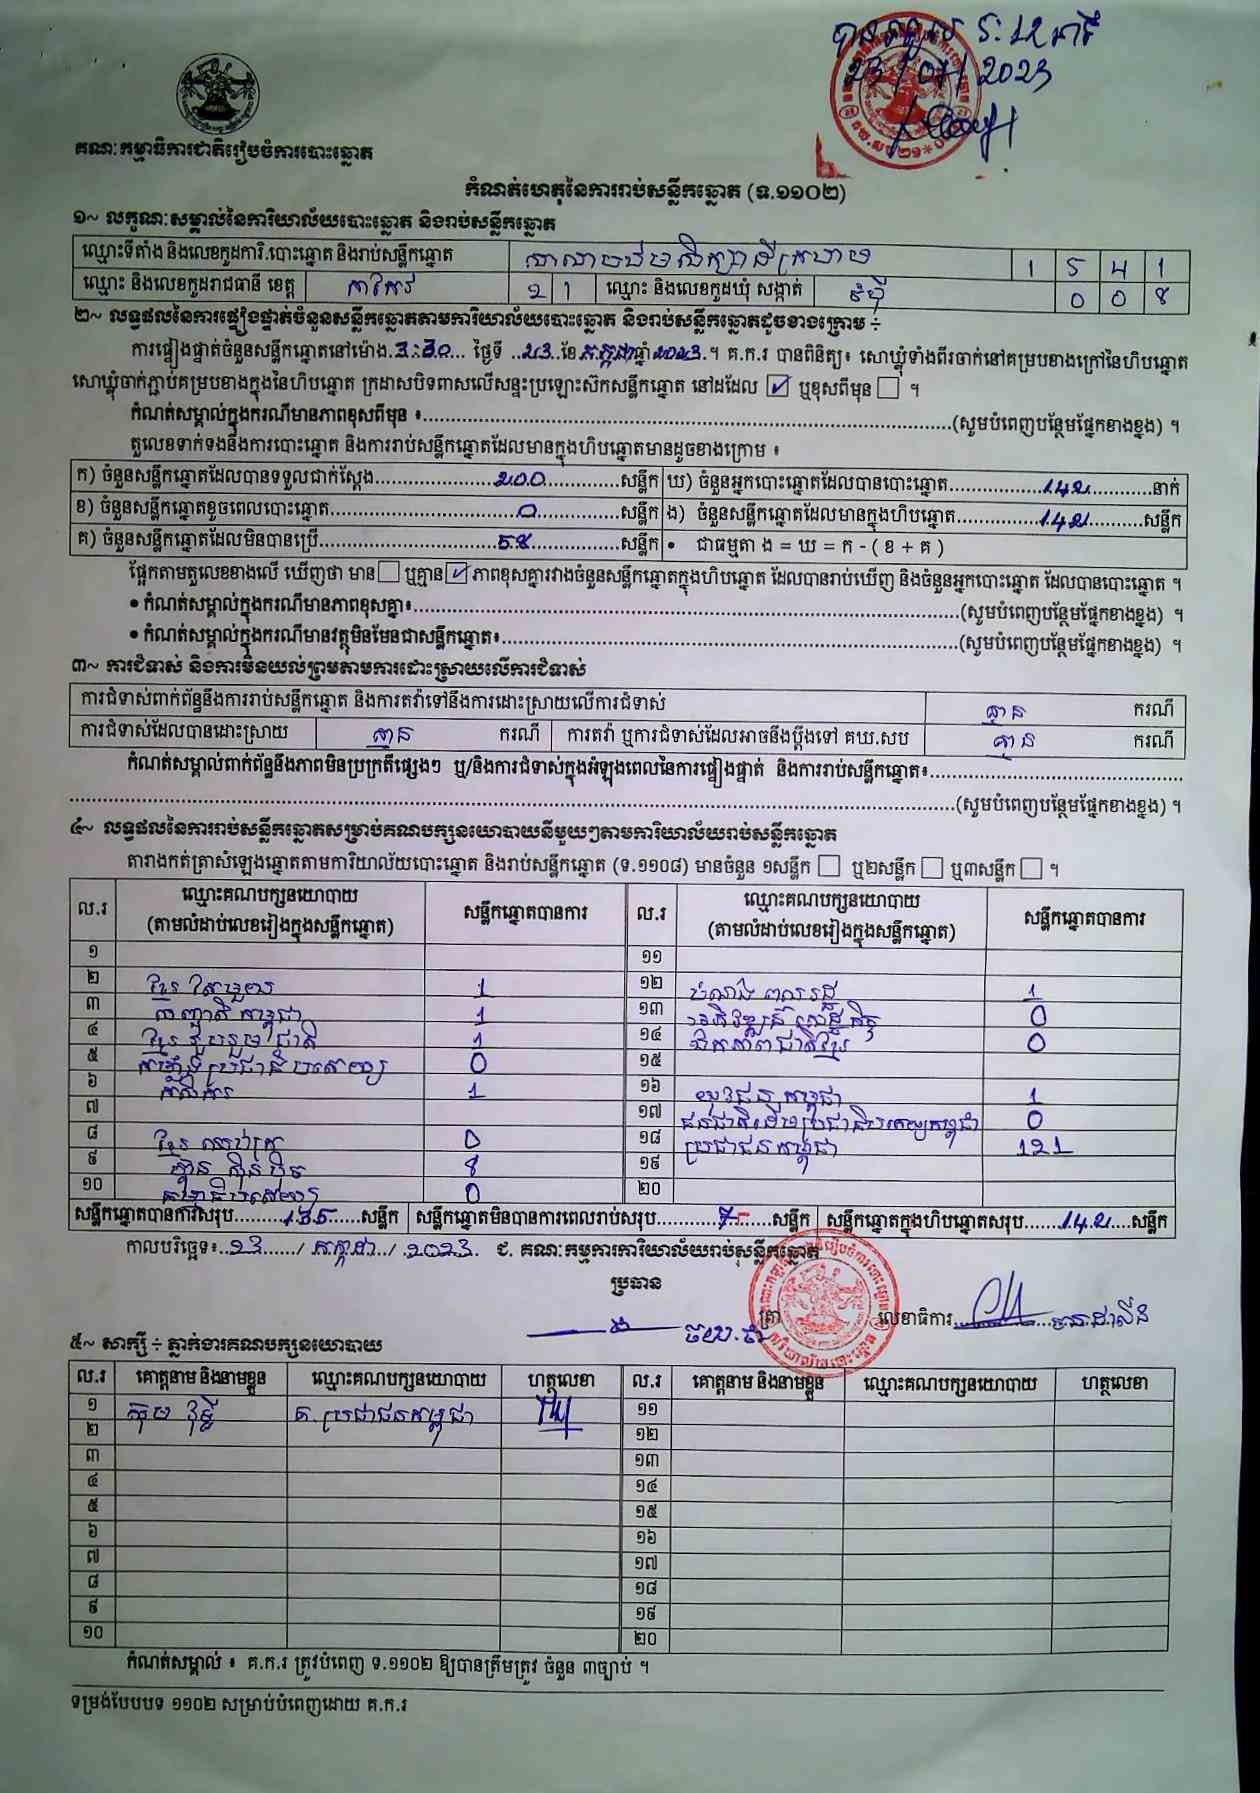 បានទទួល ៩:12 នាទី
23/07/2023
គណៈកម្មាធិការជាតិរៀបចំការបោះឆ្នោត
កំណត់ហេតុនៃការរាប់សន្លឹកឆ្នោត (ទ.១១០២)
១~ លក្ខណៈសម្គាល់នៃការិយាល័យបោះឆ្នោត និងរាប់សន្លឹកឆ្នោត
ឈ្មោះទីតាំង និងលេខកូដការិ.បោះឆ្នោត និងរាប់សន្លឹកឆ្នោត 1 5 4 1
ឈ្មោះ និងលេខកូដរាជធានី ខេត្ត តាកែវ 2 1 ឈ្មោះ និងលេខកូដឃុំ សង្កាត់ 0 0 8
២~ លទ្ធផលនៃការផ្ទៀងផ្ទាត់ចំនួនសន្លឹកឆ្នោតតាមការិយាល័យបោះឆ្នោត និងរាប់សន្លឹកឆ្នោតដូចខាងក្រោម ÷
ការផ្ទៀងផ្ទាត់ចំនួនសន្លឹកឆ្នោតនៅម៉ោង 3:30 ថ្ងៃទី 23 ខែ កក្កដា ឆ្នាំ 2023 ។ គ.ក.រ បានពិនិត្យ៖ សោឃ្លុំទាំងពីរចាក់នៅគម្របខាងក្រៅនៃហិបឆ្នោត
សោឃ្លុំចាក់ភ្ជាប់គម្របខាងក្នុងនៃហិបឆ្នោត ក្រដាសបិទពាសលើសន្ទះប្រឡោះស៊កសន្លឹកឆ្នោត នៅដដែល ☑ ឬខុសពីមុន ☐ ។
កំណត់សម្គាល់ក្នុងករណីមានភាពខុសពីមុន ៖ (សូមបំពេញបន្ថែមផ្នែកខាងខ្នង) ។
តួលេខទាក់ទងនឹងការបោះឆ្នោត និងការរាប់សន្លឹកឆ្នោតដែលមានក្នុងហិបឆ្នោតមានដូចខាងក្រោម ៖
ក) ចំនួនសន្លឹកឆ្នោតដែលបានទទួលជាក់ស្តែង 200 សន្លឹក ឃ) ចំនួនអ្នកបោះឆ្នោតដែលបានបោះឆ្នោត 142 នាក់
ខ) ចំនួនសន្លឹកឆ្នោតខូចពេលបោះឆ្នោត 0 សន្លឹក ង) ចំនួនសន្លឹកឆ្នោតដែលមានក្នុងហិបឆ្នោត 142 សន្លឹក
គ) ចំនួនសន្លឹកឆ្នោតដែលមិនបានប្រើ 58 សន្លឹក • ជាធម្មតា ង = ឃ = ក - ( ខ + គ )
ផ្អែកតាមតួលេខខាងលើ ឃើញថា មាន ☐ ឬគ្មាន ☑ ភាពខុសគ្នារវាងចំនួនសន្លឹកឆ្នោតក្នុងហិបឆ្នោត ដែលបានរាប់ឃើញ និងចំនួនអ្នកបោះឆ្នោត ដែលបានបោះឆ្នោត ។
• កំណត់សម្គាល់ក្នុងករណីមានភាពខុសគ្នា៖ (សូមបំពេញបន្ថែមផ្នែកខាងខ្នង) ។
• កំណត់សម្គាល់ក្នុងករណីមានវត្ថុមិនមែនជាសន្លឹកឆ្នោត៖ (សូមបំពេញបន្ថែមផ្នែកខាងខ្នង) ។
៣~ ការជំទាស់ និងការមិនយល់ព្រមតាមការដោះស្រាយលើការជំទាស់
ការជំទាស់ពាក់ព័ន្ធនឹងការរាប់សន្លឹកឆ្នោត និងការតវ៉ាទៅនឹងការដោះស្រាយលើការជំទាស់ គ្មាន ករណី
ការជំទាស់ដែលបានដោះស្រាយ គ្មាន ករណី ការតវ៉ា ឬការជំទាស់ដែលអាចនឹងប្តឹងទៅ គឃ.សប គ្មាន ករណី
កំណត់សម្គាល់ពាក់ព័ន្ធនឹងភាពមិនប្រក្រតីផ្សេងៗ ឬ/និងការជំទាស់ក្នុងអំឡុងពេលនៃការផ្ទៀងផ្ទាត់ និងការរាប់សន្លឹកឆ្នោត៖
(សូមបំពេញបន្ថែមផ្នែកខាងខ្នង) ។
៤~ លទ្ធផលនៃការរាប់សន្លឹកឆ្នោតសម្រាប់គណបក្សនយោបាយនីមួយៗតាមការិយាល័យរាប់សន្លឹកឆ្នោត
តារាងកត់ត្រាសំឡេងឆ្នោតតាមការិយាល័យបោះឆ្នោត និងរាប់សន្លឹកឆ្នោត (ទ.១១០៨) មានចំនួន ១សន្លឹក ☐ ឬ២សន្លឹក ☐ ឬ៣សន្លឹក ☐ ។
ល.រ ឈ្មោះគណបក្សនយោបាយ (តាមលំដាប់លេខរៀងក្នុងសន្លឹកឆ្នោត) សន្លឹកឆ្នោតបានការ ល.រ ឈ្មោះគណបក្សនយោបាយ (តាមលំដាប់លេខរៀងក្នុងសន្លឹកឆ្នោត) សន្លឹកឆ្នោតបានការ
១ ១១
២ ខ្មែរតែមួយ 1 ១២ បំណងពលរដ្ឋ 1
៣ 1 ១៣ អភិវឌ្ឍន៍សេដ្ឋកិច្ច 0
៤ ខ្មែររួបរួមជាតិ 1 ១៤ ឯកភាពជាតិខ្មែរ 0
៥ កម្លាំងប្រជាធិបតេយ្យ 0 ១៥
៦ កសិករ 1 ១៦ យុវជនកម្ពុជា 1
៧ ១៧ ជនជាតិដើមប្រជាធិបតេយ្យកម្ពុជា 0
៨ ខ្មែរ 0 ១៨ ប្រជាជនកម្ពុជា 121
៩ ហ៊្វុនស៊ិនប៉ិច 8 ១៩
១០ 0 ២០
សន្លឹកឆ្នោតបានការសរុប 135 សន្លឹក សន្លឹកឆ្នោតមិនបានការពេលរាប់សរុប 7 សន្លឹក សន្លឹកឆ្នោតក្នុងហិបឆ្នោតសរុប 142 សន្លឹក
កាលបរិច្ឆេទ៖ 23 / កក្កដា / 2023 ជ. គណៈកម្មការការិយាល័យរាប់សន្លឹកឆ្នោត
ប្រធាន
ត្រា លេខាធិការ
៥~ សាក្សី ÷ ភ្នាក់ងារគណបក្សនយោបាយ
ល.រ គោត្តនាម និងនាមខ្លួន ឈ្មោះគណបក្សនយោបាយ ហត្ថលេខា ល.រ គោត្តនាម និងនាមខ្លួន ឈ្មោះគណបក្សនយោបាយ ហត្ថលេខា
១ គ.ប្រជាជនកម្ពុជា ១១
២ ១២
៣ ១៣
៤ ១៤
៥ ១៥
៦ ១៦
៧ ១៧
៨ ១៨
៩ ១៩
១០ ២០
កំណត់សម្គាល់ ៖ គ.ក.រ ត្រូវបំពេញ ទ.១១០២ ឱ្យបានត្រឹមត្រូវ ចំនួន ៣ច្បាប់ ។
ទម្រង់បែបបទ ១១០២ សម្រាប់បំពេញដោយ គ.ក.រ